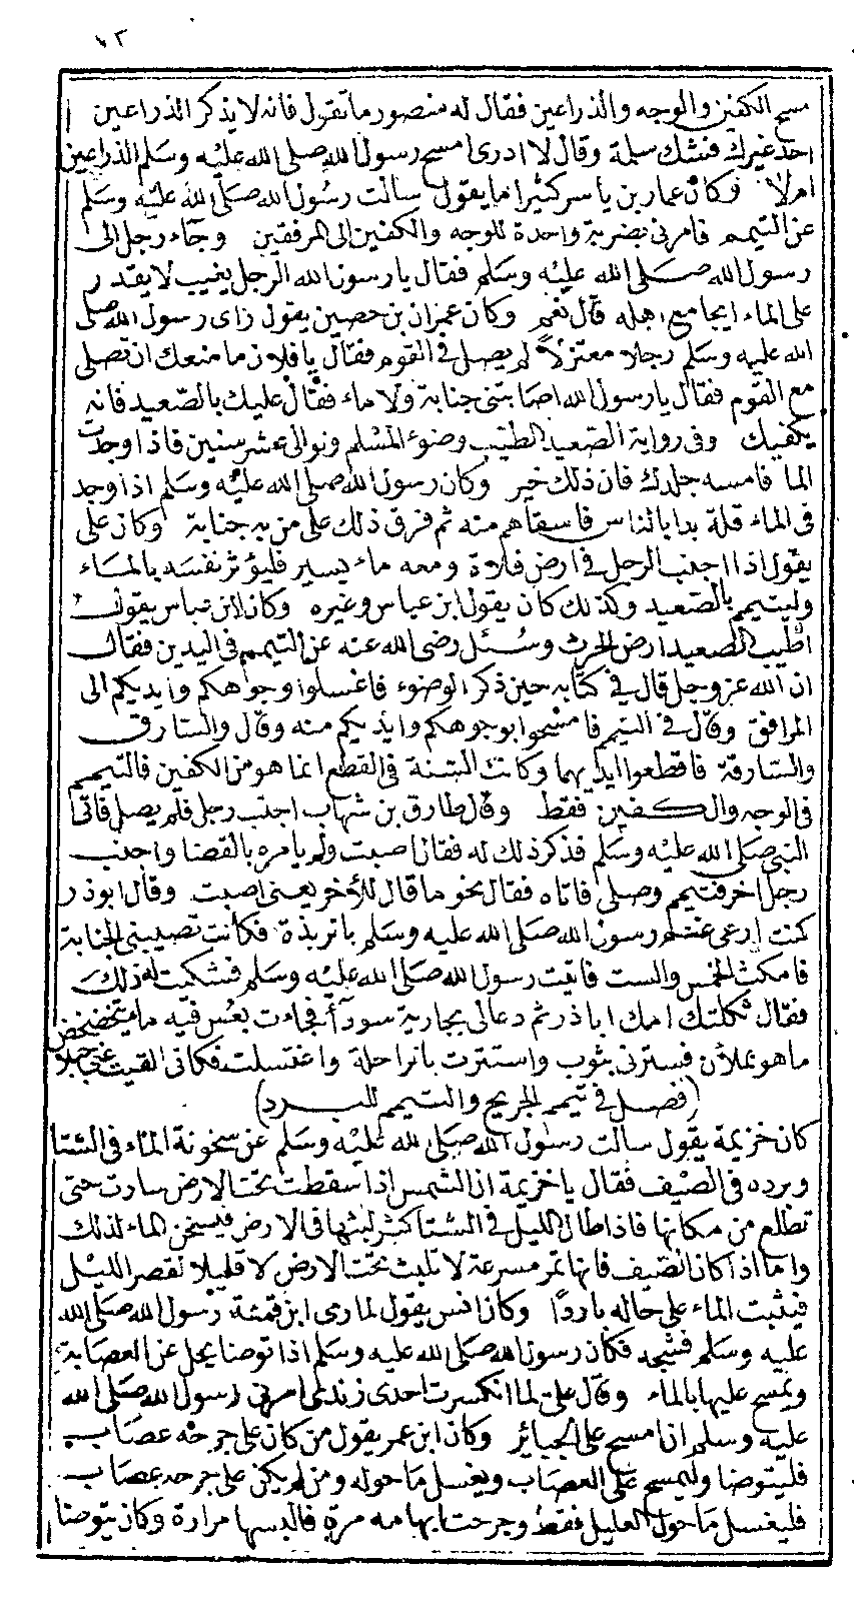 ٧٣
مسح الكفين والوجه والذراعين فقال له منصور ما تقول فانه لا يذكر الذراعين
احد غيرك فشك سلمة وقال لا ادرى امسح رسول الله صلى الله عليه وسلم الذراعين
ام لا وكان عمار بن ياسر كثيرا ما يقول سالت رسول الله صلى الله عليه وسلم
عن التيمم فامرنى بضربة واحدة للوجه والكفين الى المرفقين وجاء رجل الى
رسول الله صلى الله عليه وسلم فقال يا رسول الله الرجل يغيب لا يقدر
على الماء ايجامع اهله قال نعم وكان عمران بن حصين يقول راى رسول الله صلى
الله عليه وسلم رجلا معتزلا لم يصل فى القوم فقال يا فلان ما منعك ان تصلى
مع القوم فقال يا رسول الله اصابتنى جنابة ولا ماء فقال عليك بالصعيد فانه
يكفيك وفى رواية الصعيد الطيب وضوء المسلم ولو الى عشر سنين فاذا وجدت
الما فامسه جلدك فان ذلك خير وكان رسول الله صلى الله عليه وسلم اذا وجد
فى الماء قلة بدا بالناس فاسقاهم منه ثم فرق ذلك على من به جنابة وكان على
يقول اذا اجنب الرجل فى ارض فلاة ومعه ماء يسير فليؤثر نفسه بالماء
وليتيمم بالصعيد وكذلك كان يقول ابن عباس وغيره وكان ابن عباس يقول
اطيب الصعيد ارض الحرث وسئل رضى الله عنه عن التيمم فى اليدين فقال
ان الله عز وجل قال فى كتابه حين ذكر الوضوء فاغسلوا وجوهكم وايديكم الى
المرافق وقال فى التيمم فامسحوا بوجوهكم وايديكم منه وقال والسارق
والسارقة فاقطعوا ايديهما وكانت السنة فى القطع انما هو من الكفين فالتيمم
فى الوجه والكفين فقط وقال طارق بن شهاب اجنب رجل فلم يصل فاتى
النبى صلى الله عليه وسلم فذكر ذلك له فقال اصبت ولم يامره بالقضا واجنب
رجل اخر فتيمم وصلى فاتاه فقال نحو ما قال للأخر يعنى اصبت وقال ابو ذر
كنت ارعى غنم رسول الله صلى الله عليه وسلم بالربذة فكانت تصيبنى الجنابة
فامكث الخمس والست فاتيت رسول الله صلى الله عليه وسلم فشكيت له ذلك
فقال ثكلتك امك ابا ذر ثم دعا لى بجارية سودآء فجاءت بعس فيه ما يتخضخض
ما هو بملأن فسترنى بثوب واستترت بالراحلة واغتسلت فكانى القيت عنى جبلا
(فصل فى تيمم الجريح والتيمم للبرد)
كان خزيمة يقول سالت رسول الله صلى الله عليه وسلم عن سخونة الماء فى الشتا
وبرده فى الصيف فقال يا خزيمة ان الشمس اذا سقطت تحت الارض سارت حتى
تطلع من مكانها فاذا طال الليل فى الشتا كثر لبثها فى الارض فيسخن الماء لذلك
واما اذا كان الصيف فانها تمر مسرعة لا تلبث تحت الارض الا قليلا لقصر الليل
فيثبت الماء على حاله باردا وكان انس يقول لما رمى ابن قمئة رسول الله صلى الله
عليه وسلم فشجه فكان رسول الله صلى الله عليه وسلم اذا توضا يحل عن العصابة
ويمسح عليها بالماء وقال على لما انكسرت احدى زندى امرنى رسول الله صلى الله
عليه وسلم ان امسح على الجبائر وكان ابن عمر يقول من كان على جرحه عصاب
فليتوضا وليمسح على العصاب ويغسل ما حوله ومن لم يكن على جرحه عصاب
فليغسل ما حول العليل فقط وجرحت ابهامه مرة فالبسها مرارة وكان يتوضا